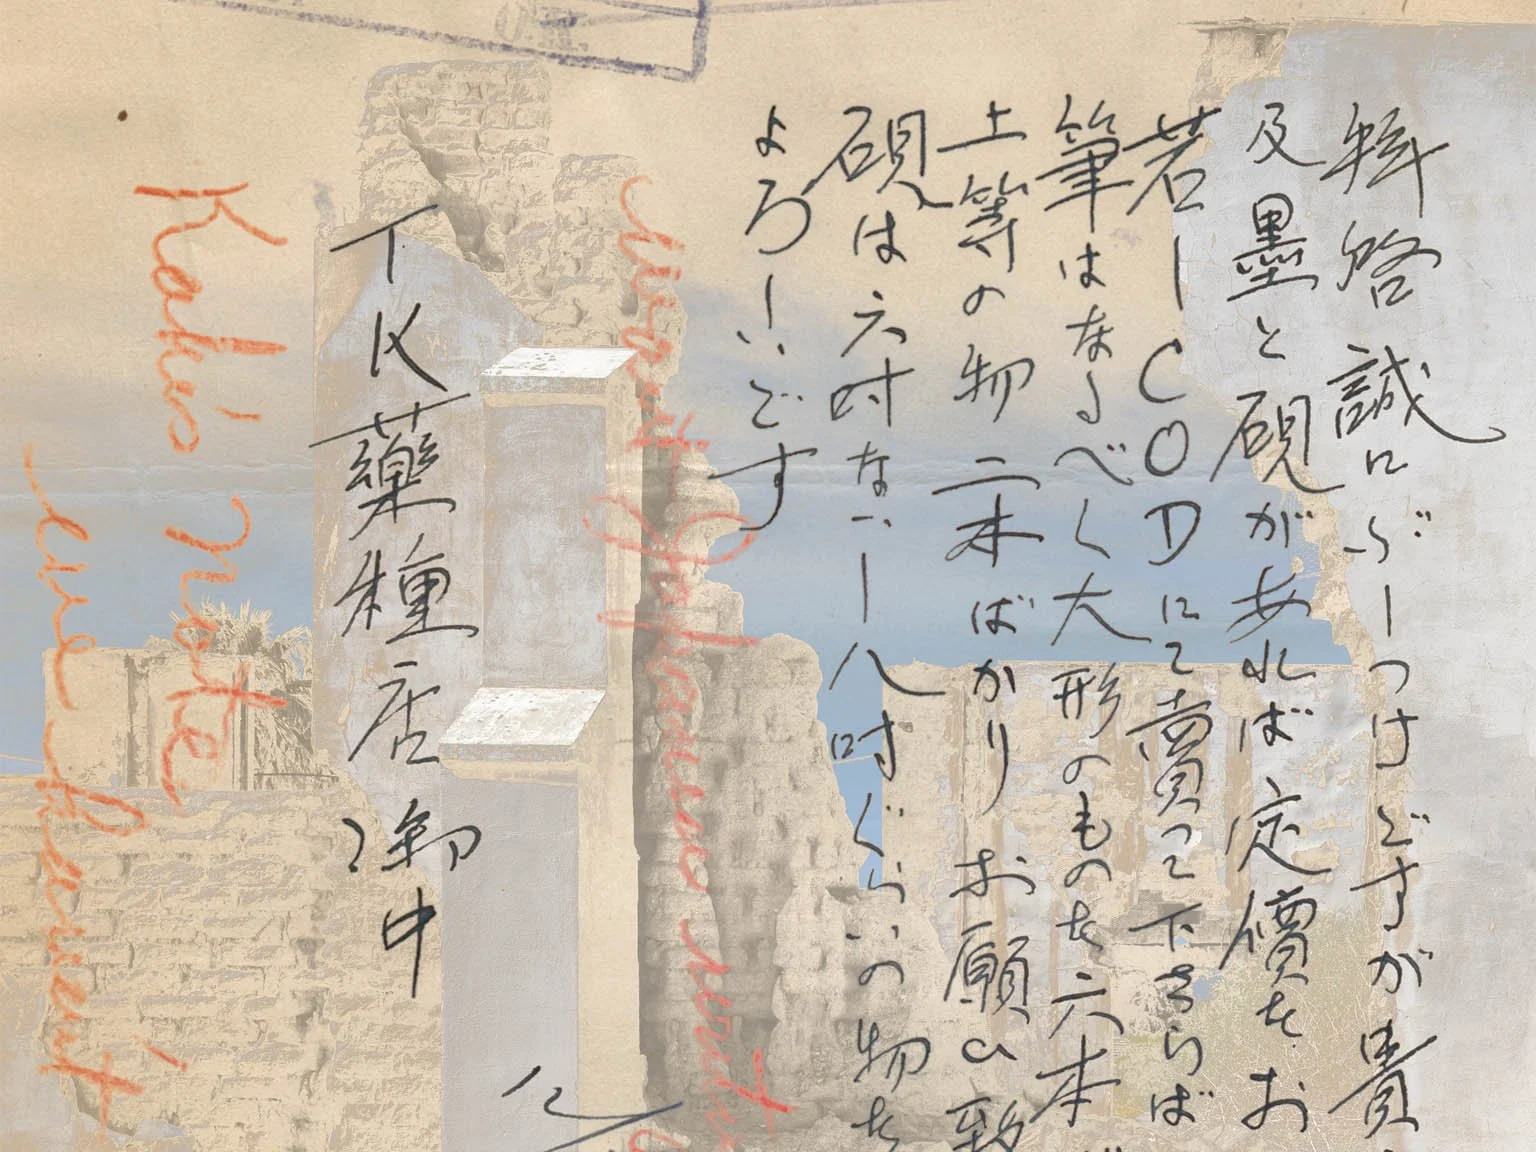 拝啓誠にぶしつけですが貴
及墨と硯があれば定價をお
若しCODにて賣って下さらば
筆はなるべく大形のものを六本
上等の物二本ばかりお願ひ致
硯は六吋ないし八吋ぐらいの物を
よろしいです
want Japanese
TK藥種店御中
note
we haven't